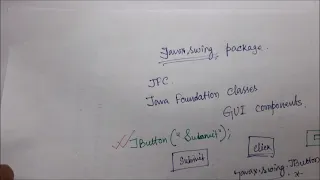 Javax.swing package.
JFC
Java Foundation classes
GUI components
JButton("Submit");
Submit
Click
javax.swing.JButton